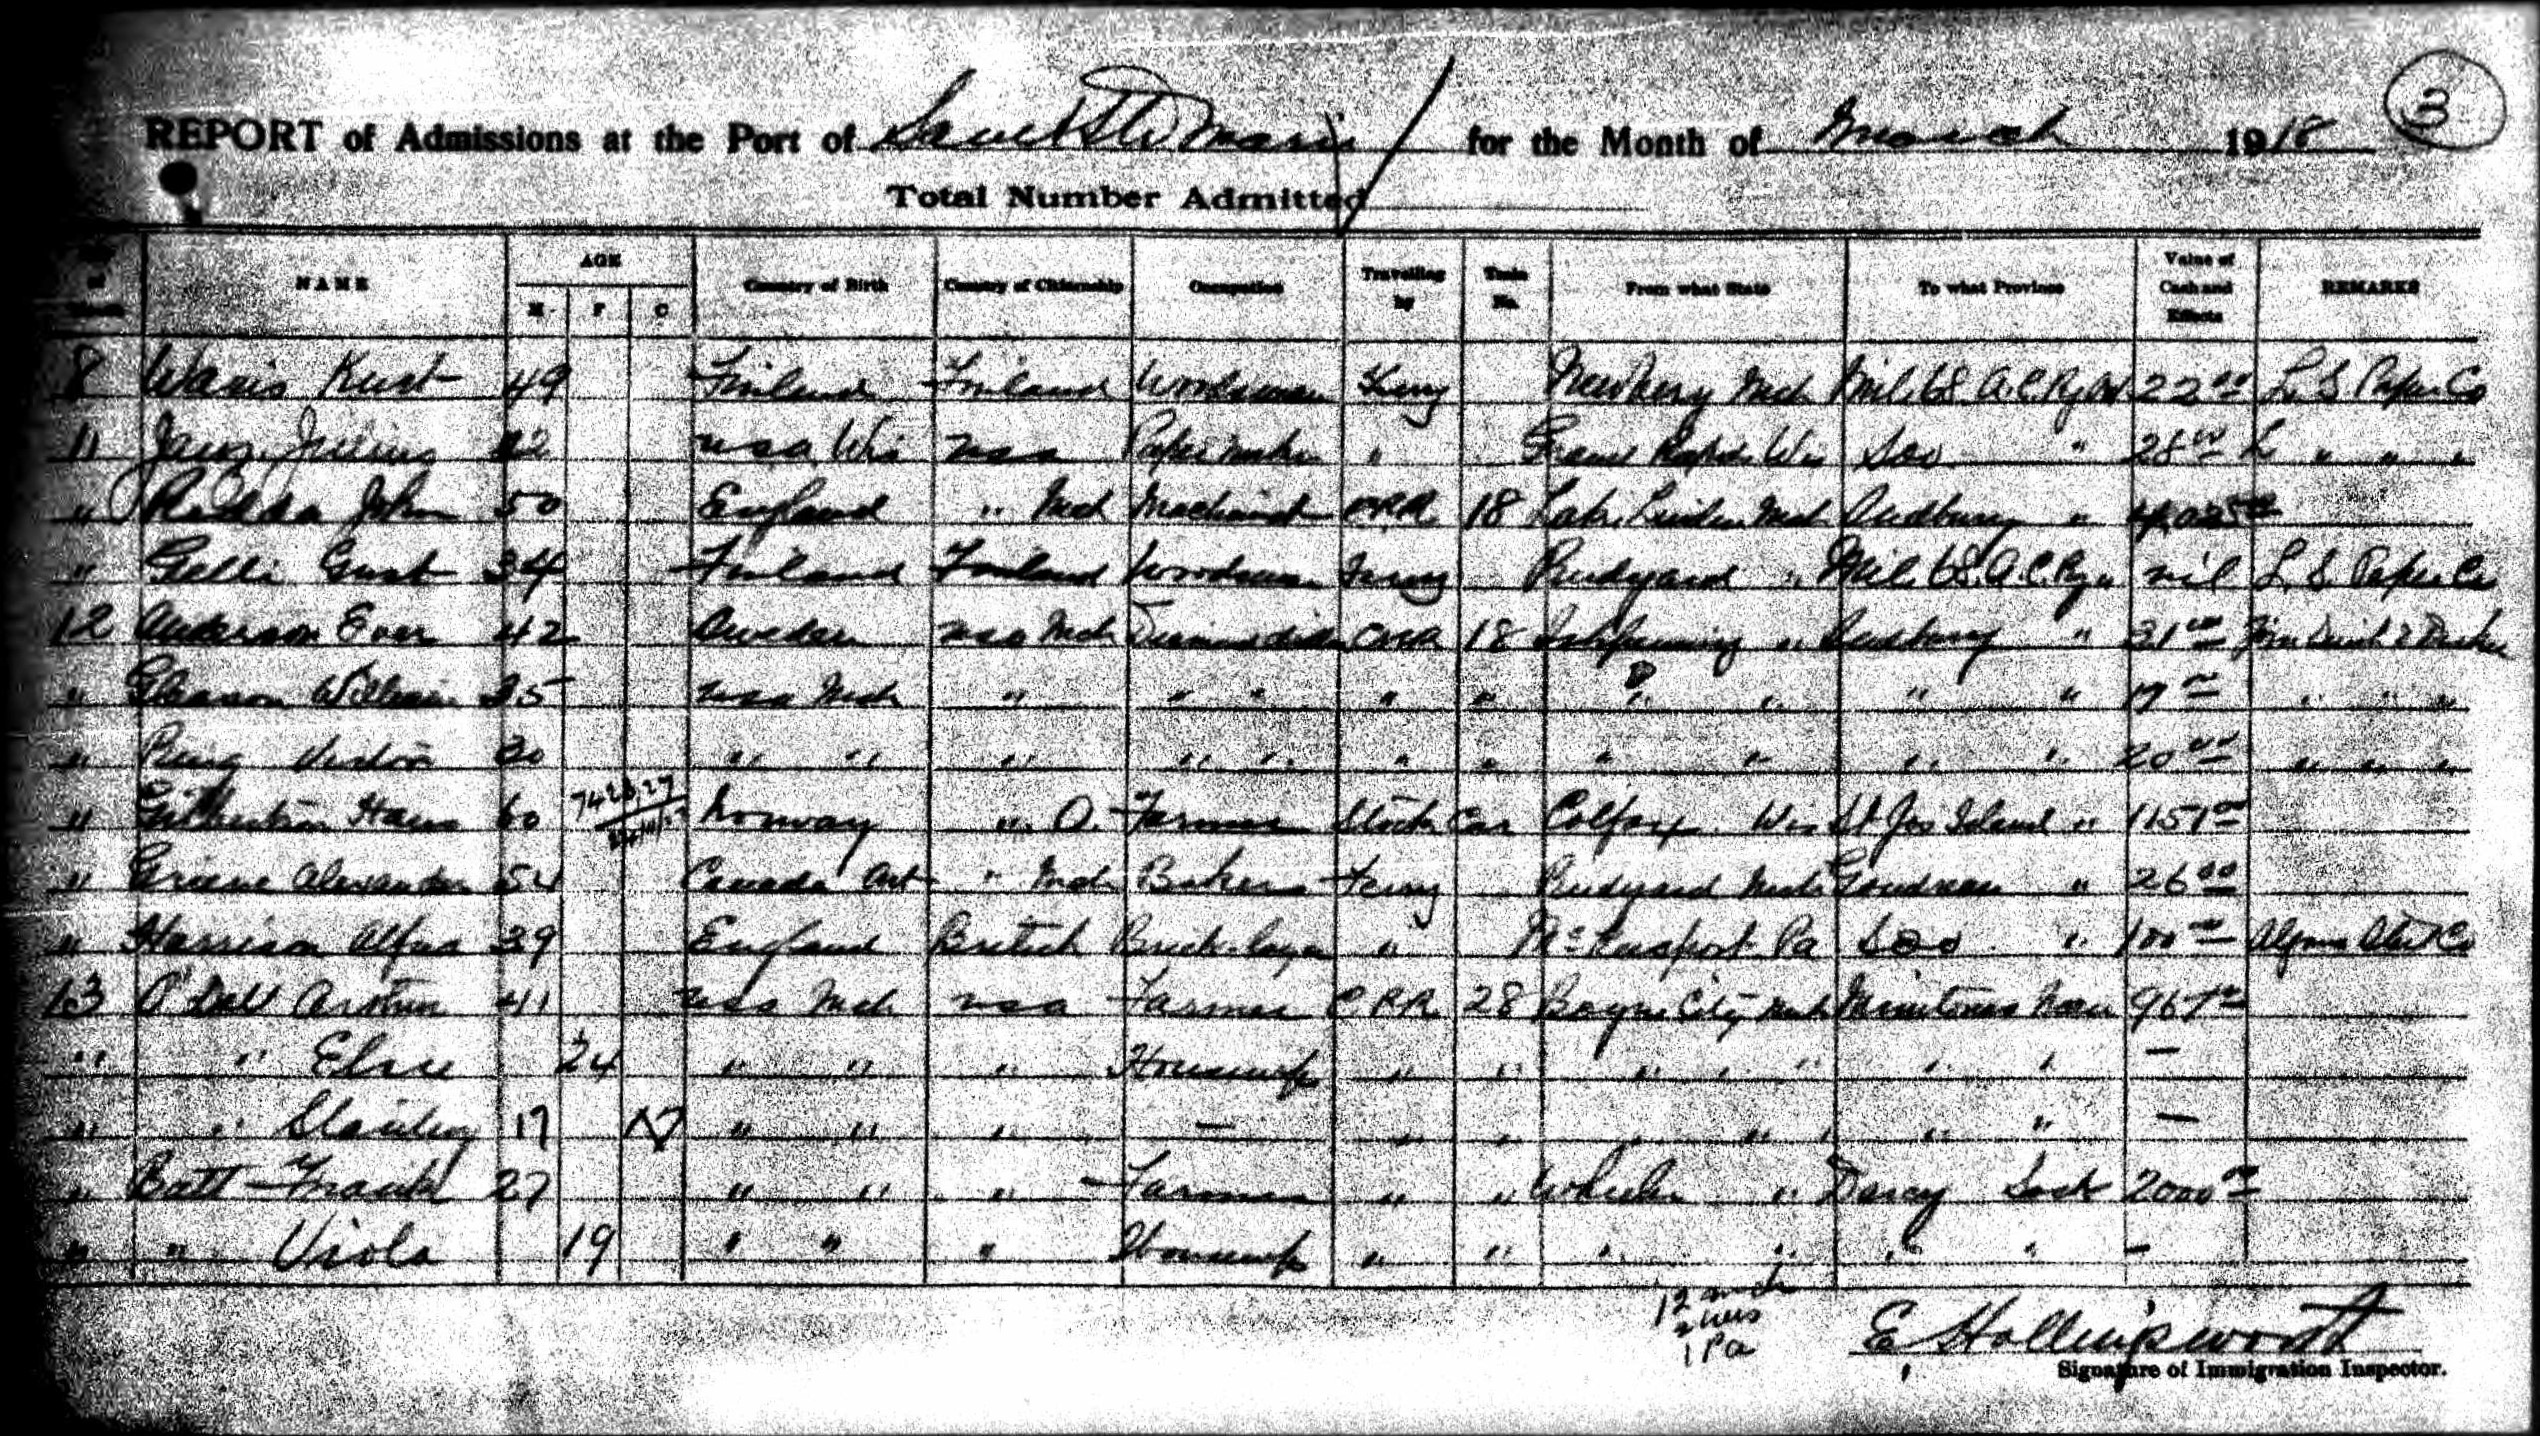 3
REPORT of Admissions at the Port of Sault Ste Marie for the Month of March 1918
Total Number Admitted
of
Month
NAME
AGE
M F C
Country of Birth
Country of Citizenship
Occupation
Travelling by
Train No.
From what State
To what Province
Value of Cash and Effects
REMARKS
8 Waris Kust 49 Finland Finland Woodsman Ferry Newbery Mch Mil. 68 A.C.Ry 22 00 L S Paper Co
11 Julius usa Wis usa Papermaker " Wis Soo " 28 00 L " " "
" John 50 England " Mch Machinist CPR 18 Lake Linden Mch Sudbury "
" Gelli Gust 34 Finland Finland Woodsman Ferry Rudyard " Mil. 68 A.C.Ry " nil L S Paper Co
12 Anderson Ever 42 Sweden usa Mch CPR 18 Ishpeming " Sudbury " 31 00
" Gleason William 35 usa Mch " " " " " " " " " 17 00 " " "
" 30 " " " " " " " " " " " 20 00 " " "
" Hans 60 Norway " O. Farmer Stock Car Colfax Wis St Jos Island " 1157 00
" Greene Alexander 54 Canada Ont " Mch Baker Ferry Rudyard Mch Goudreau " 26 00
" Harrison 39 England British Brick layer " McKeesport Pa Soo " 100 00 Algoma Steel Co
13 O'Dell Arthur 41 usa Mch usa Farmer CPR 28 Boyne City Mch Minitonas Man 967 00
" " Elsie 24 " " " Housewife " " " " " " " —
" " Stanley 17 " " " — " " " " " " " —
" Batt Frank 27 " " " Farmer " " Wheeler " Darcy Sask 2000 00
" " Viola 19 " " " Housewife " " " " " " -
12 mch
2 wis
1 Pa
E Hollingsworth
Signature of Immigration Inspector.